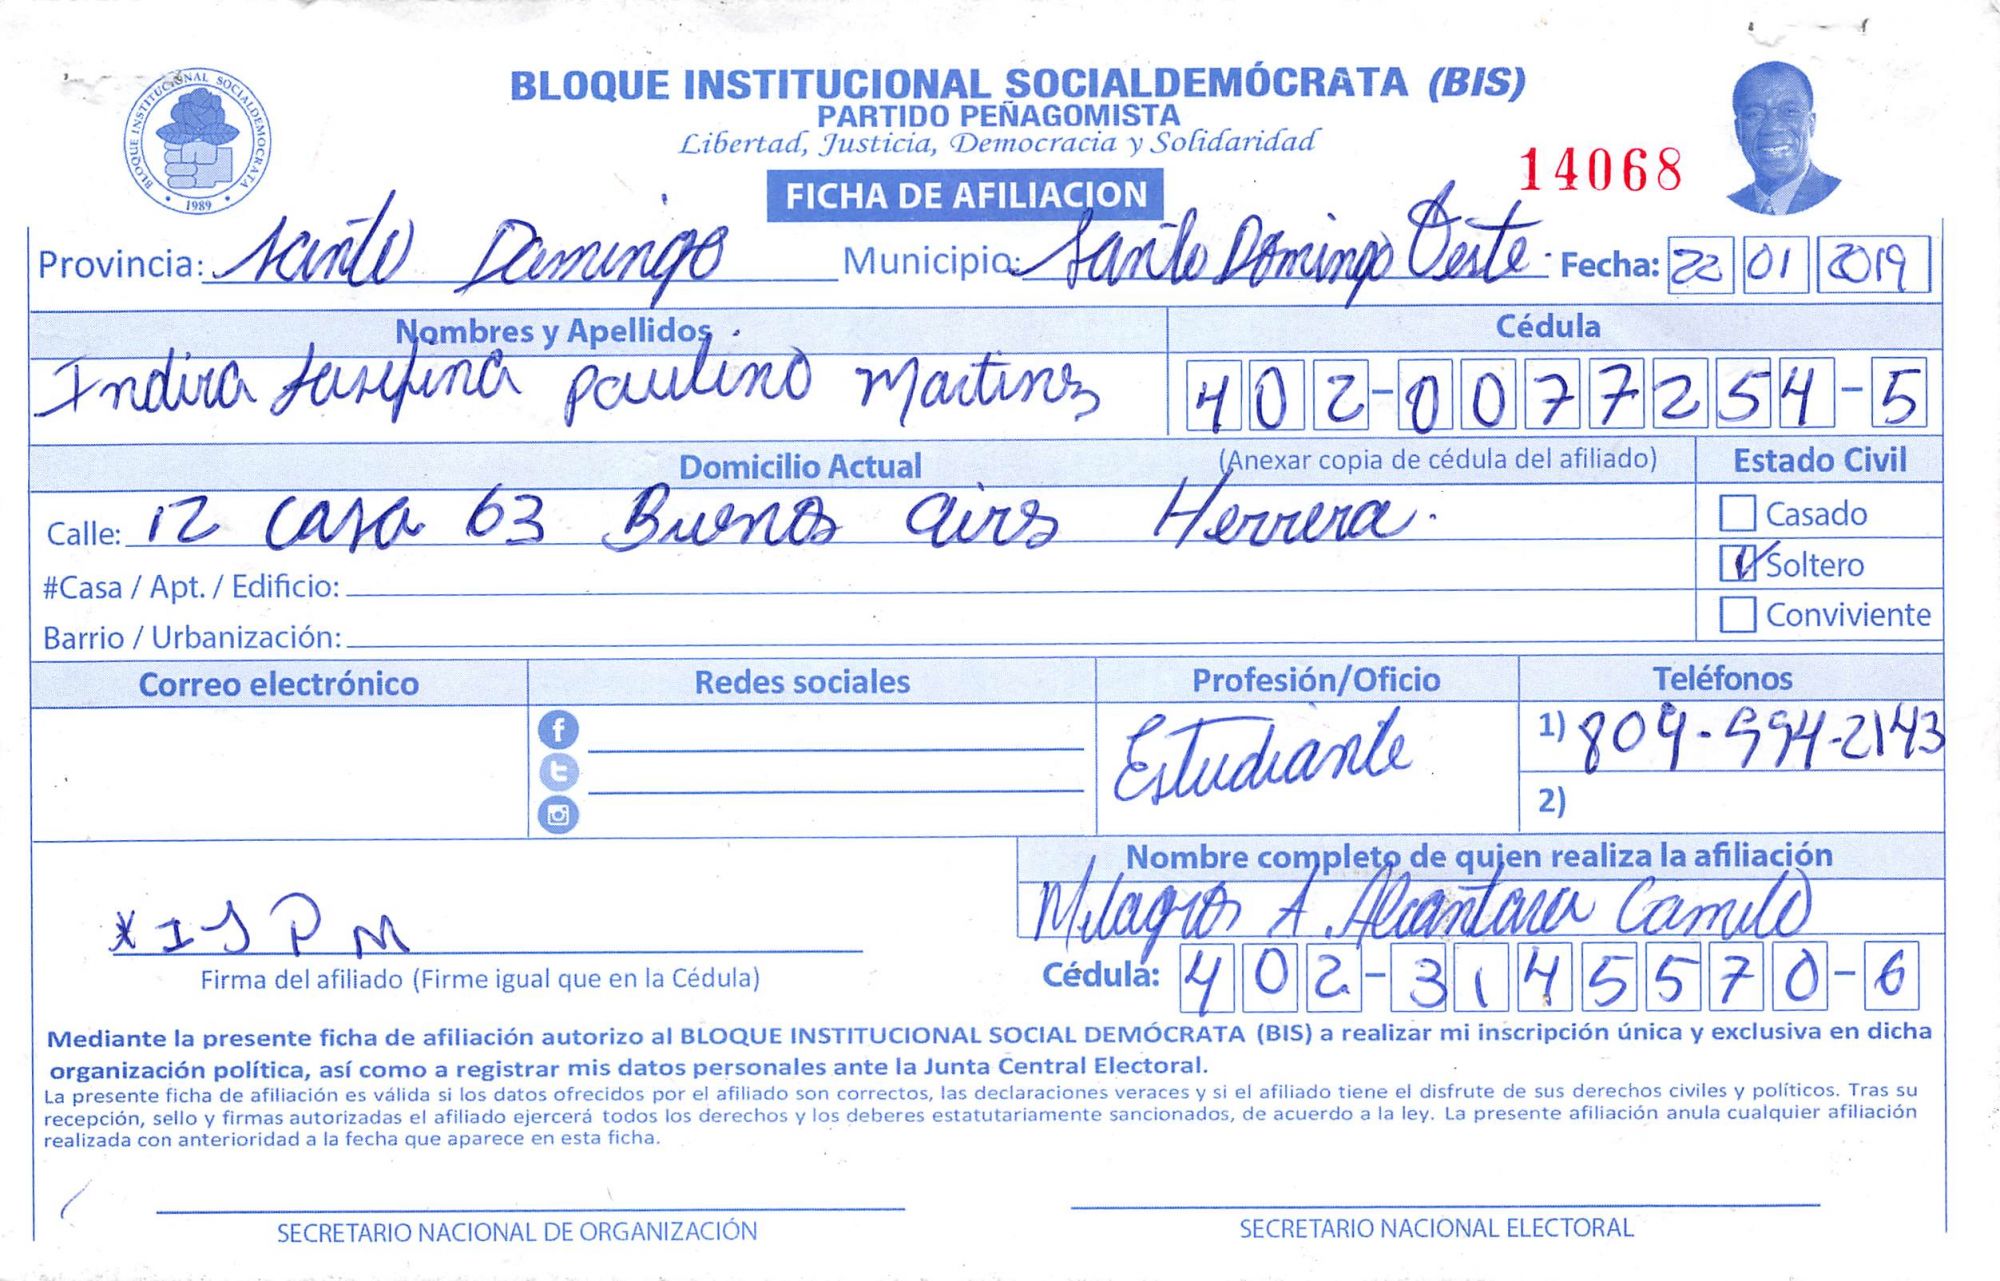 BLOQUE INSTITUCIONAL SOCIALDEMÓCRATA (BIS)
PARTIDO PEÑAGOMISTA
Libertad, Justicia, Democracia y Solidaridad
BLOQUE INSTITUCIONAL SOCIALDEMOCRATA
1989
14068
FICHA DE AFILIACION
Provincia: Santo Domingo Municipio: Santo Domingo Oeste. Fecha: 22 01 2019
Nombres y Apellidos Cédula
Indira Josefina Paulino Martinez 402-0077254-5
Domicilio Actual (Anexar copia de cédula del afiliado) Estado Civil
Calle: 12 casa 63 Buenos Aires Herrera. Casado
#Casa / Apt. / Edificio: Soltero
Barrio / Urbanización: Conviviente
Correo electrónico Redes sociales Profesión/Oficio Teléfonos
Estudiante 1) 809-994-2143
2)
Nombre completo de quien realiza la afiliación
Milagros A. Alcantara Camilo
x I J P M
Firma del afiliado (Firme igual que en la Cédula) Cédula: 402-3145570-6
Mediante la presente ficha de afiliación autorizo al BLOQUE INSTITUCIONAL SOCIAL DEMÓCRATA (BIS) a realizar mi inscripción única y exclusiva en dicha
organización política, así como a registrar mis datos personales ante la Junta Central Electoral.
La presente ficha de afiliación es válida si los datos ofrecidos por el afiliado son correctos, las declaraciones veraces y si el afiliado tiene el disfrute de sus derechos civiles y políticos. Tras su
recepción, sello y firmas autorizadas el afiliado ejercerá todos los derechos y los deberes estatutariamente sancionados, de acuerdo a la ley. La presente afiliación anula cualquier afiliación
realizada con anterioridad a la fecha que aparece en esta ficha.
SECRETARIO NACIONAL DE ORGANIZACIÓN SECRETARIO NACIONAL ELECTORAL